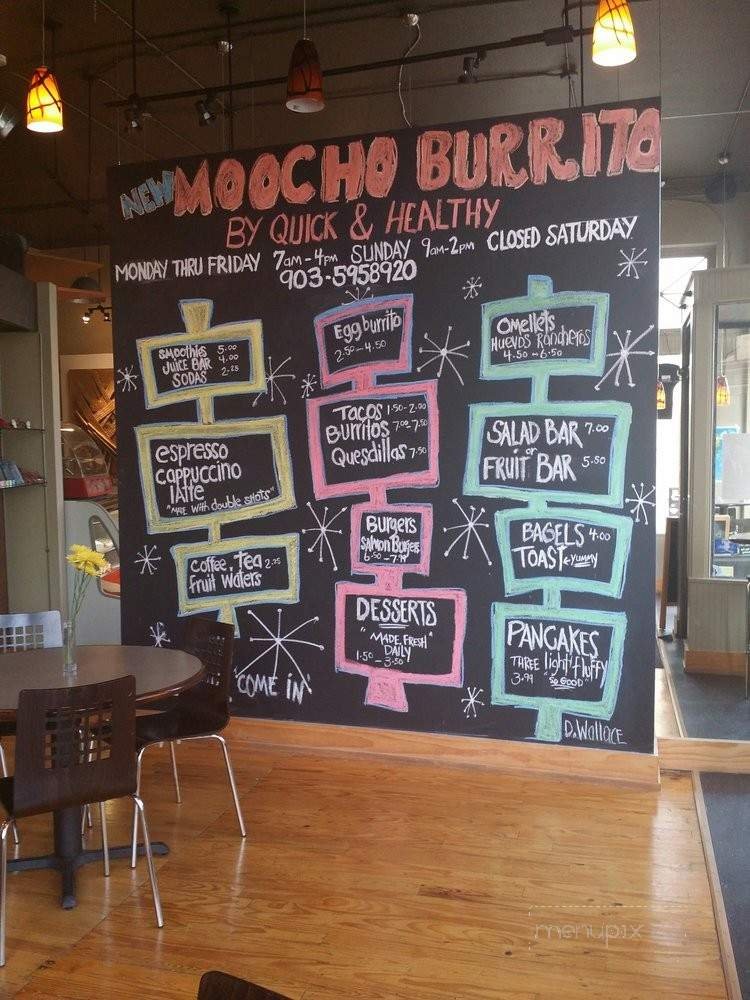 NEW MOOCHO BURRITO
BY QUICK & HEALTHY
MONDAY THRU FRIDAY 7am-4pm SUNDAY 9am-2pm CLOSED SATURDAY
903-5958920
SMOOTHIES 5.00
JUICE BAR 4.00
SODAS 2.25
espresso
cappuccino
latte
"MADE With double SHOTS"
Coffee, Tea 2.25
fruit waters
"COME IN"
Egg burrito
2.50-4.50
Tacos 1.50-2.00
Burritos 7.00-7.50
Quesdillas 7.50
Burgers
Salmon Burgers
6.50-7.99
DESSERTS
"MADE FRESH"
DAILY
1.50-3.50
Omellets
Huevos Rancheros
4.50-6.50
SALAD BAR 7.00
or
FRUIT BAR 5.50
BAGELS 4.00
TOAST YUMMY
PANCAKES
THREE light/fluffy
3.99 "SO GOOD"
D. Wallace
menupix